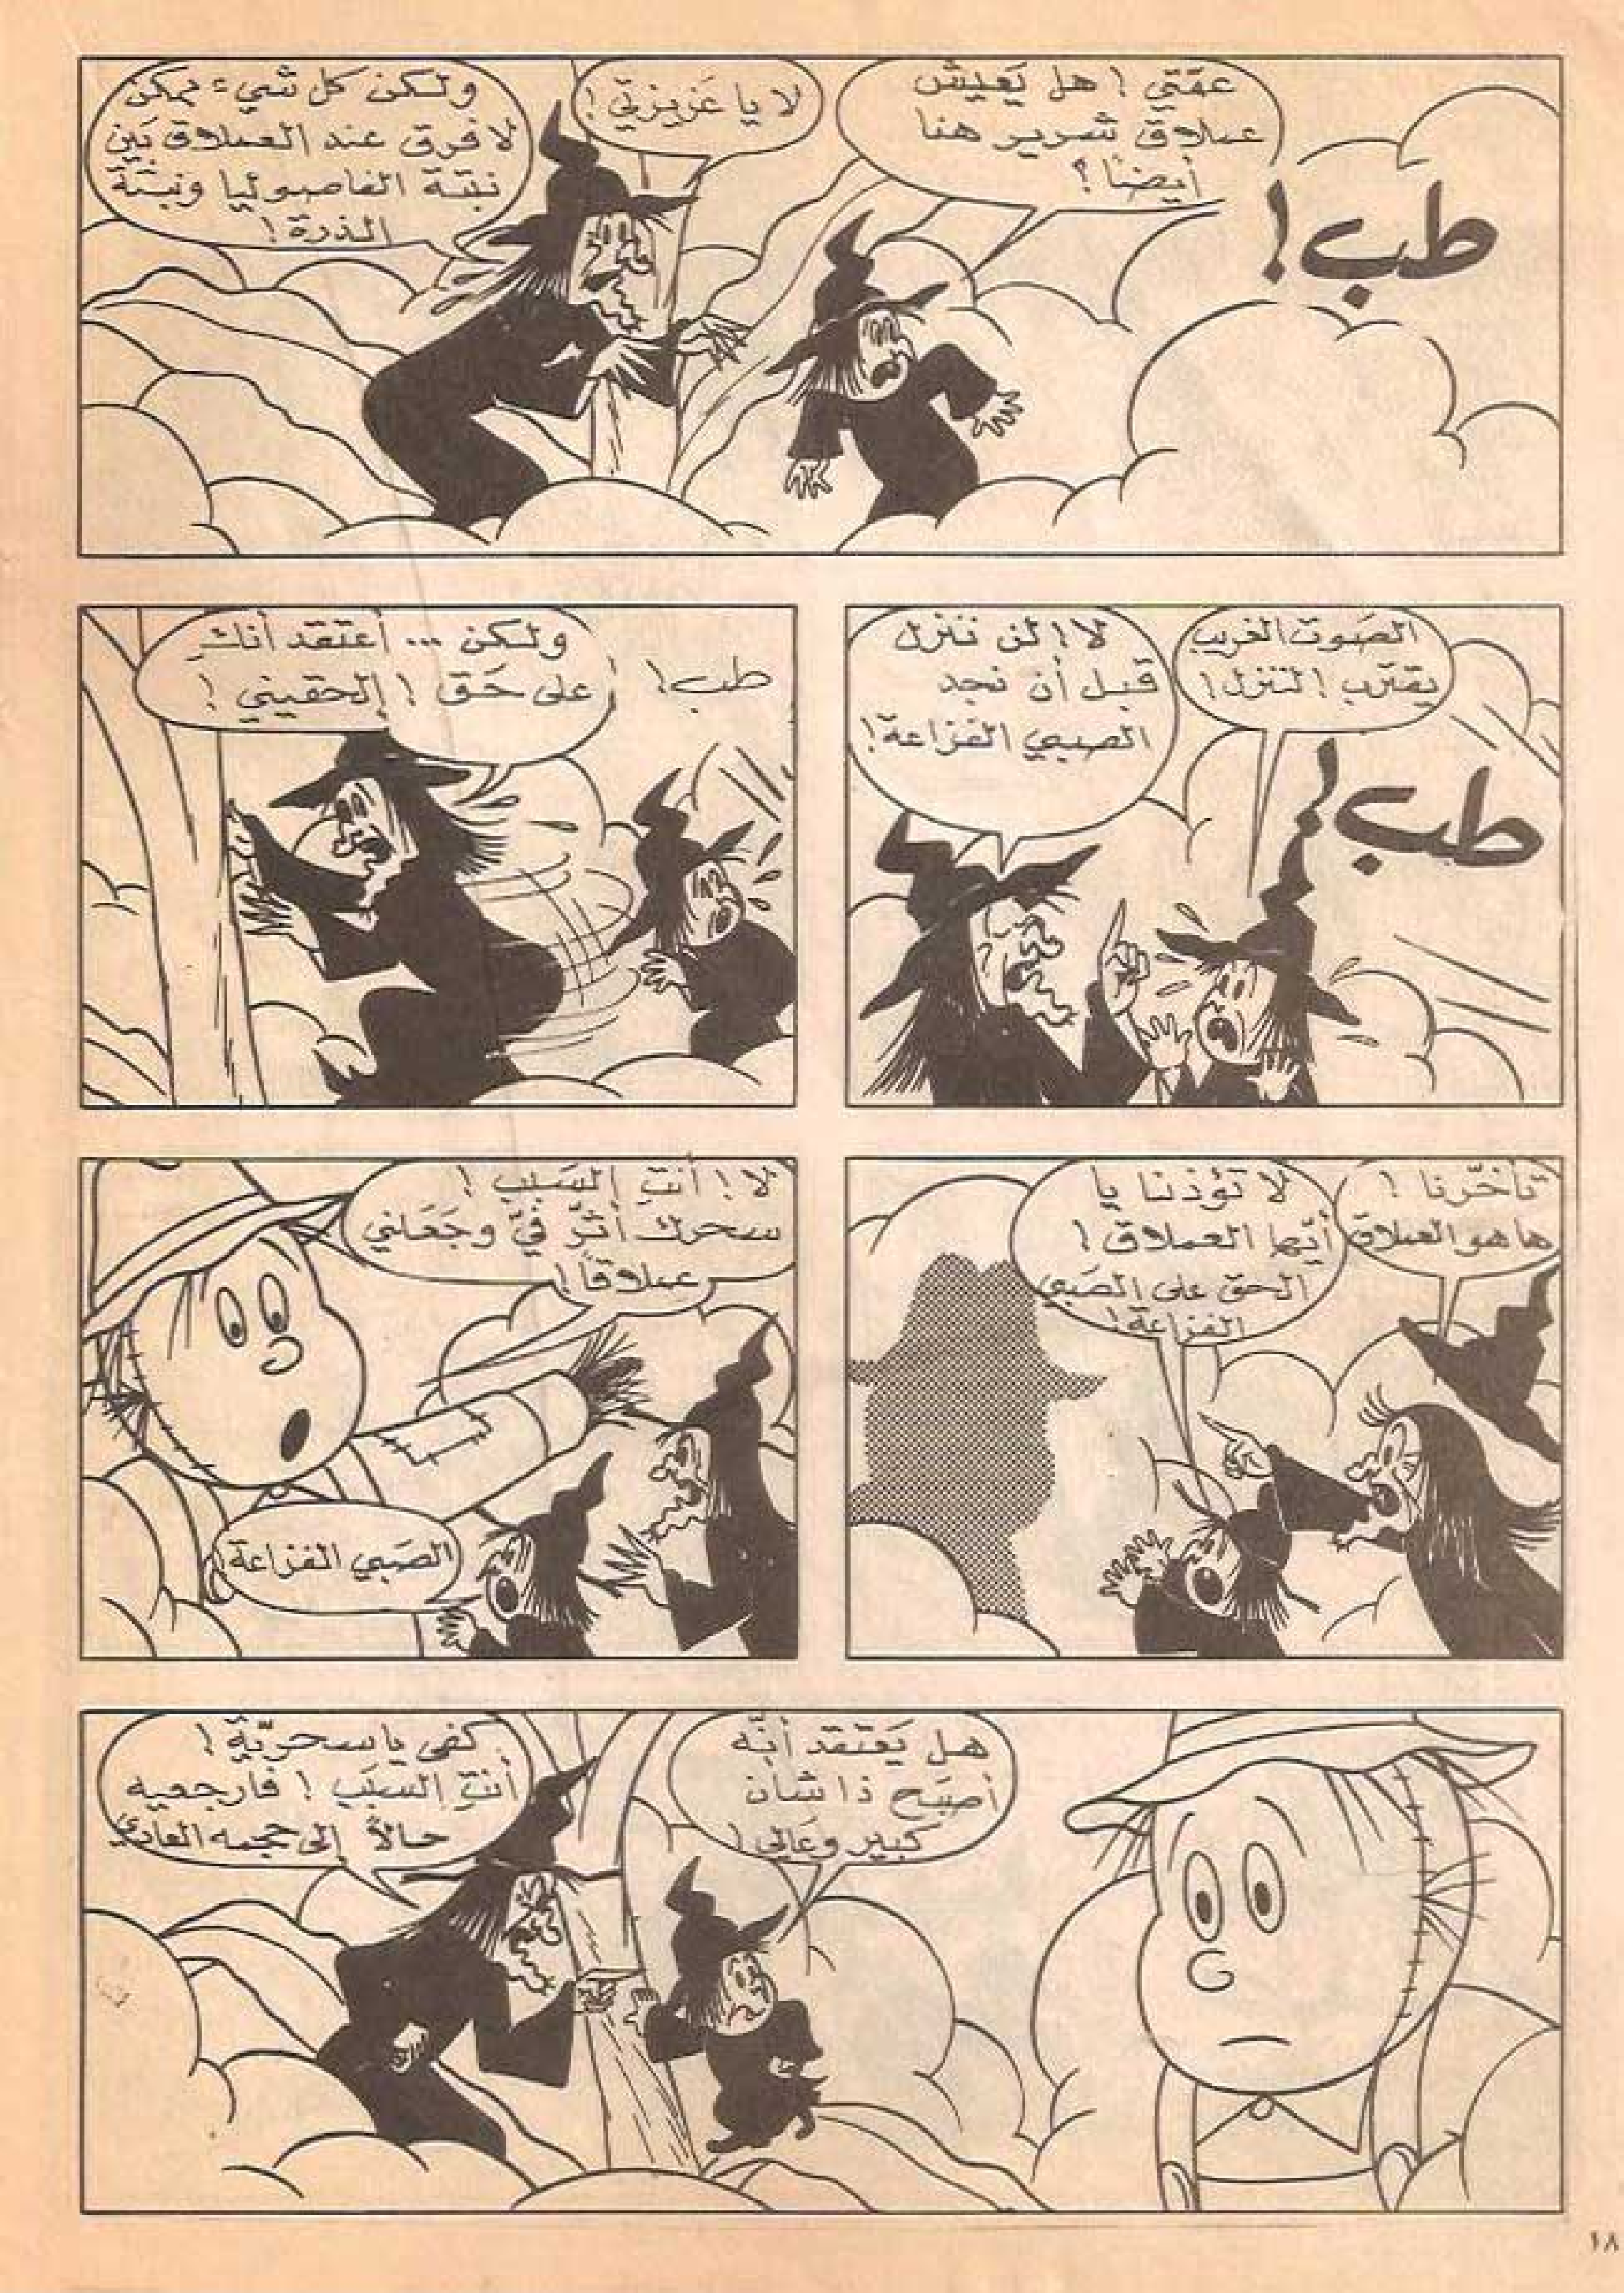 طب!
عمّتي! هل يَعيش
عملاق شرير هنا
أيضاً؟
لا يا عَزيزتي!
ولكن كل شيء ممكن
لا فرق عند العملاق بَين
نبتة الفاصوليا ونبتة
الذرة!
الصَوت الغريب
يقترب! لننزل!
طب!
لا! لن ننزل
قبل أن نجد
الصبي الفزاعة!
طب!
ولكن ... أعتقد أنك
على حَق! إلحقيني!
تأخّرنا!
ها هو العملاق
لا تؤذنا يا
أيّها العملاق!
الحق على الصَبي
الفزاعة!
لا! أنتِ السَبب!
سحرك أثّر فيّ وجَعَلني
عملاقاً!
الصَبي الفزاعة!
هل يَعتقد أنّه
أصبَح ذا شأن
كبير وعَالي!
كفى يا سحريّة!
أنتِ السبَب! فارجعيه
حالاً إلى حجمه العادي
١٨